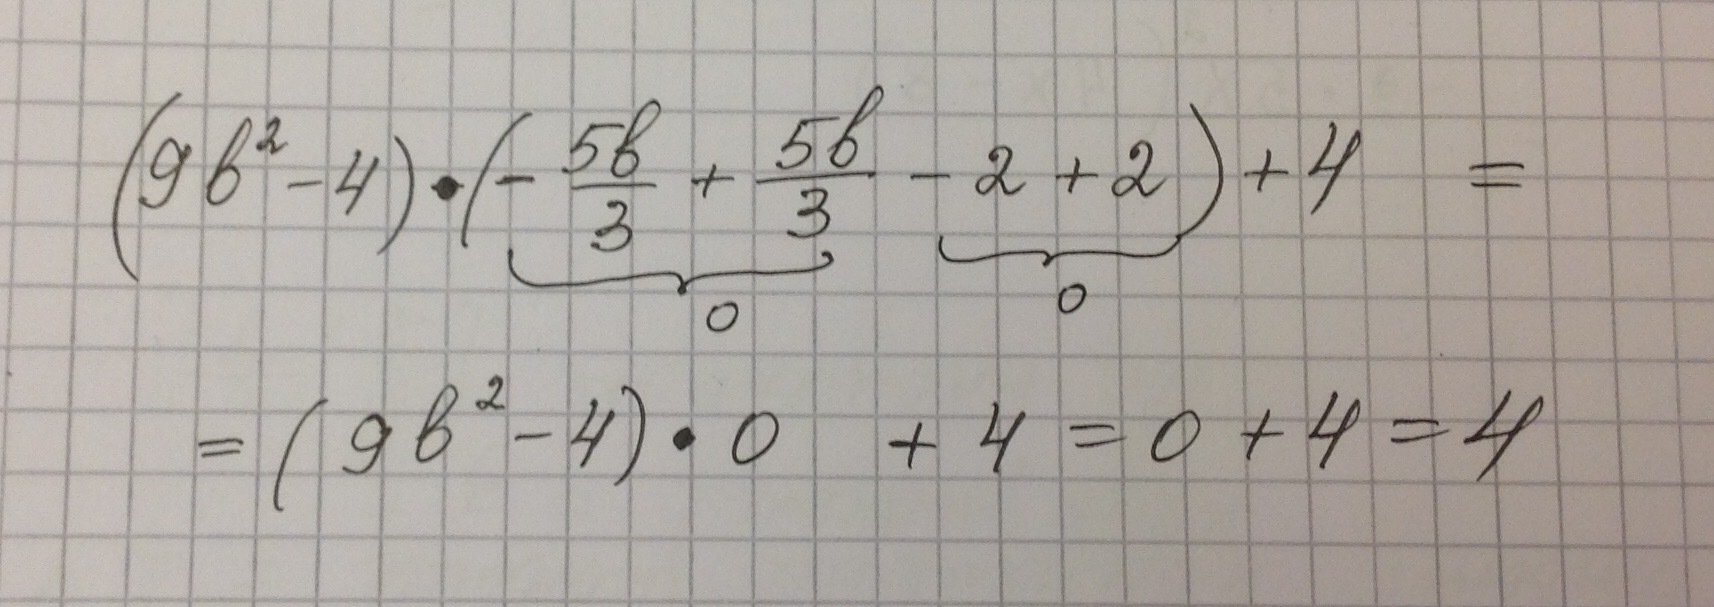 (9b² - 4) • (- 5b/3 + 5b/3 - 2 + 2) + 4 =
0 0
= (9b² - 4) • 0 + 4 = 0 + 4 = 4